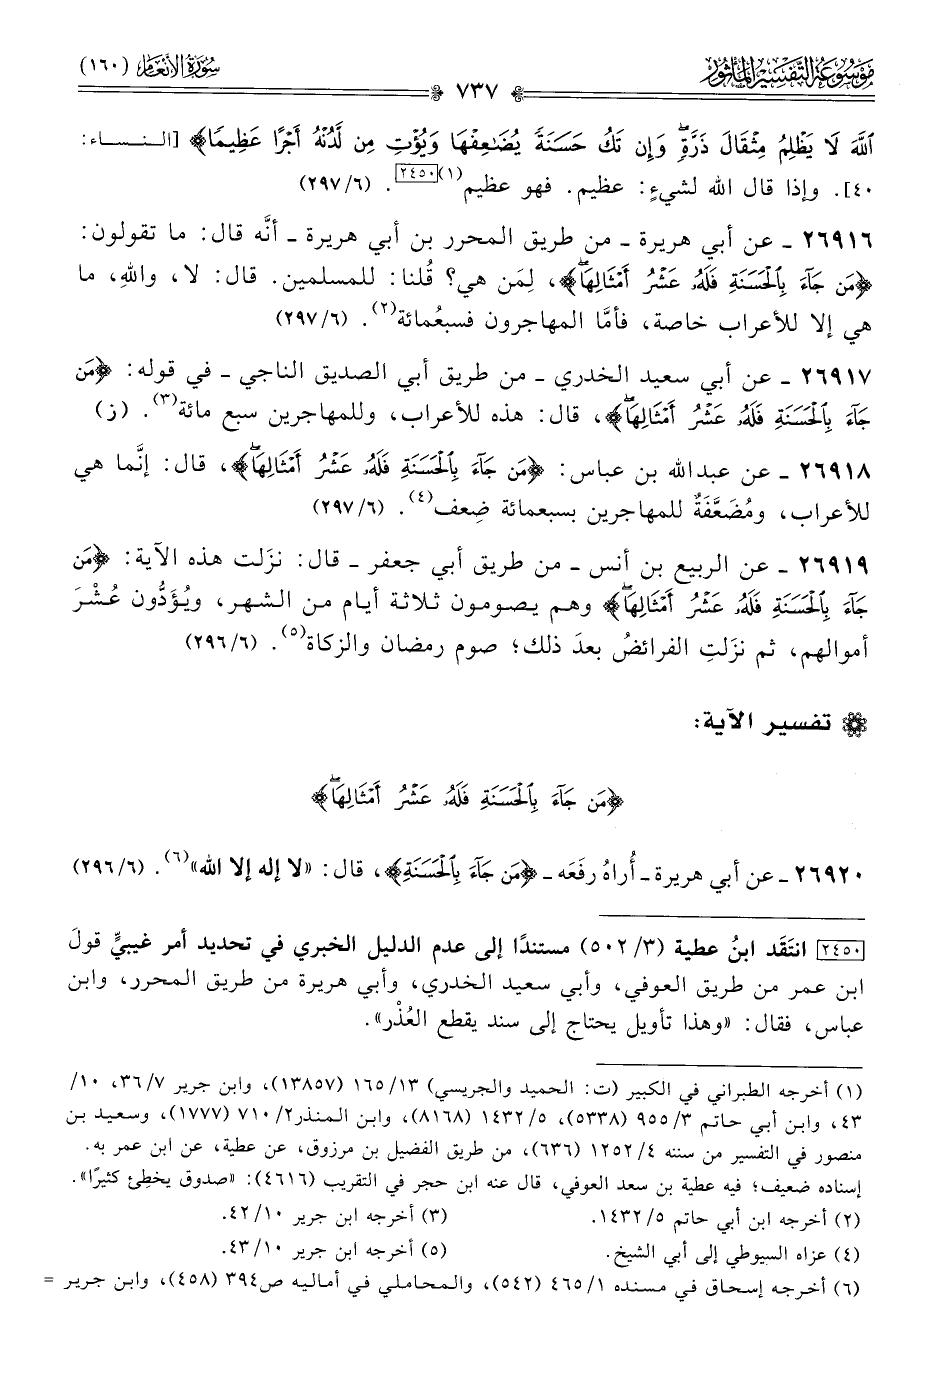 موسوعة التفسير المأثور
سورة الأنعام (١٦٠)
٧٣٧
ٱللَّهَ لَا يَظْلِمُ مِثْقَالَ ذَرَّةٍۖ وَإِن تَكُ حَسَنَةً يُضَٰعِفْهَا وَيُؤْتِ مِن لَّدُنْهُ أَجْرًا عَظِيمًا﴾ [النساء:
٤٠]. وإذا قال الله لشيءٍ: عظيم. فهو عظيم(١)[٢٤٥٠]. (٦/٢٩٧)
٢٦٩١٦ ـ عن أبي هريرة ـ من طريق المحرر بن أبي هريرة ـ أنَّه قال: ما تقولون:
﴿مَن جَآءَ بِٱلْحَسَنَةِ فَلَهُۥ عَشْرُ أَمْثَالِهَاۖ﴾، لِمَن هي؟ قُلنا: للمسلمين. قال: لا، واللهِ، ما
هي إلا للأعراب خاصة، فأمَّا المهاجرون فسبعُمائة(٢). (٦/٢٩٧)
٢٦٩١٧ ـ عن أبي سعيد الخدري ـ من طريق أبي الصديق الناجي ـ في قوله: ﴿مَن
جَآءَ بِٱلْحَسَنَةِ فَلَهُۥ عَشْرُ أَمْثَالِهَاۖ﴾، قال: هذه للأعراب، وللمهاجرين سبع مائة(٣). (ز)
٢٦٩١٨ ـ عن عبدالله بن عباس: ﴿مَن جَآءَ بِٱلْحَسَنَةِ فَلَهُۥ عَشْرُ أَمْثَالِهَاۖ﴾، قال: إنَّما هي
للأعراب، ومُضَعَّفَةٌ للمهاجرين بسبعمائة ضِعف(٤). (٦/٢٩٧)
٢٦٩١٩ ـ عن الربيع بن أنس ـ من طريق أبي جعفر ـ قال: نزَلت هذه الآية: ﴿مَن
جَآءَ بِٱلْحَسَنَةِ فَلَهُۥ عَشْرُ أَمْثَالِهَاۖ﴾ وهم يصومون ثلاثة أيام من الشهر، ويُؤَدُّون عُشْرَ
أموالهم، ثم نزَلتِ الفرائضُ بعدَ ذلك؛ صوم رمضان والزكاة(٥). (٦/٢٩٦)
تفسير الآية:
﴿مَن جَآءَ بِٱلْحَسَنَةِ فَلَهُۥ عَشْرُ أَمْثَالِهَاۖ﴾
٢٦٩٢٠ ـ عن أبي هريرة ـ أُراهُ رفَعَه ـ ﴿مَن جَآءَ بِٱلْحَسَنَةِ﴾، قال: «لا إله إلا الله»(٦). (٦/٢٩٦)
[٢٤٥٠] انتَقَد ابنُ عطية (٣/ ٥٠٢) مستندًا إلى عدم الدليل الخبري في تحديد أمر غيبيٍّ قولَ
ابن عمر من طريق العوفي، وأبي سعيد الخدري، وأبي هريرة من طريق المحرر، وابن
عباس، فقال: «وهذا تأويل يحتاج إلى سند يقطع العُذْر».
(١) أخرجه الطبراني في الكبير (ت: الحميد والجريسي) ١٣/ ١٦٥ (١٣٨٥٧)، وابن جرير ٧/ ٣٦، ١٠/
٤٣، وابن أبي حاتم ٣/ ٩٥٥ (٥٣٣٨)، ٥/ ١٤٣٢ (٨١٦٨)، وابن المنذر٢/ ٧١٠ (١٧٧٧)، وسعيد بن
منصور في التفسير من سننه ٤/ ١٢٥٢ (٦٣٦)، من طريق الفضيل بن مرزوق، عن عطية، عن ابن عمر به.
إسناده ضعيف؛ فيه عطية بن سعد العوفي، قال عنه ابن حجر في التقريب (٤٦١٦): «صدوق يخطئ كثيرًا».
(٢) أخرجه ابن أبي حاتم ٥/ ١٤٣٢.
(٣) أخرجه ابن جرير ١٠/ ٤٢.
(٤) عزاه السيوطي إلى أبي الشيخ.
(٥) أخرجه ابن جرير ١٠/ ٤٣.
(٦) أخرجه إسحاق في مسنده ١/ ٤٦٥ (٥٤٢)، والمحاملي في أماليه ص٣٩٤ (٤٥٨)، وابن جرير =